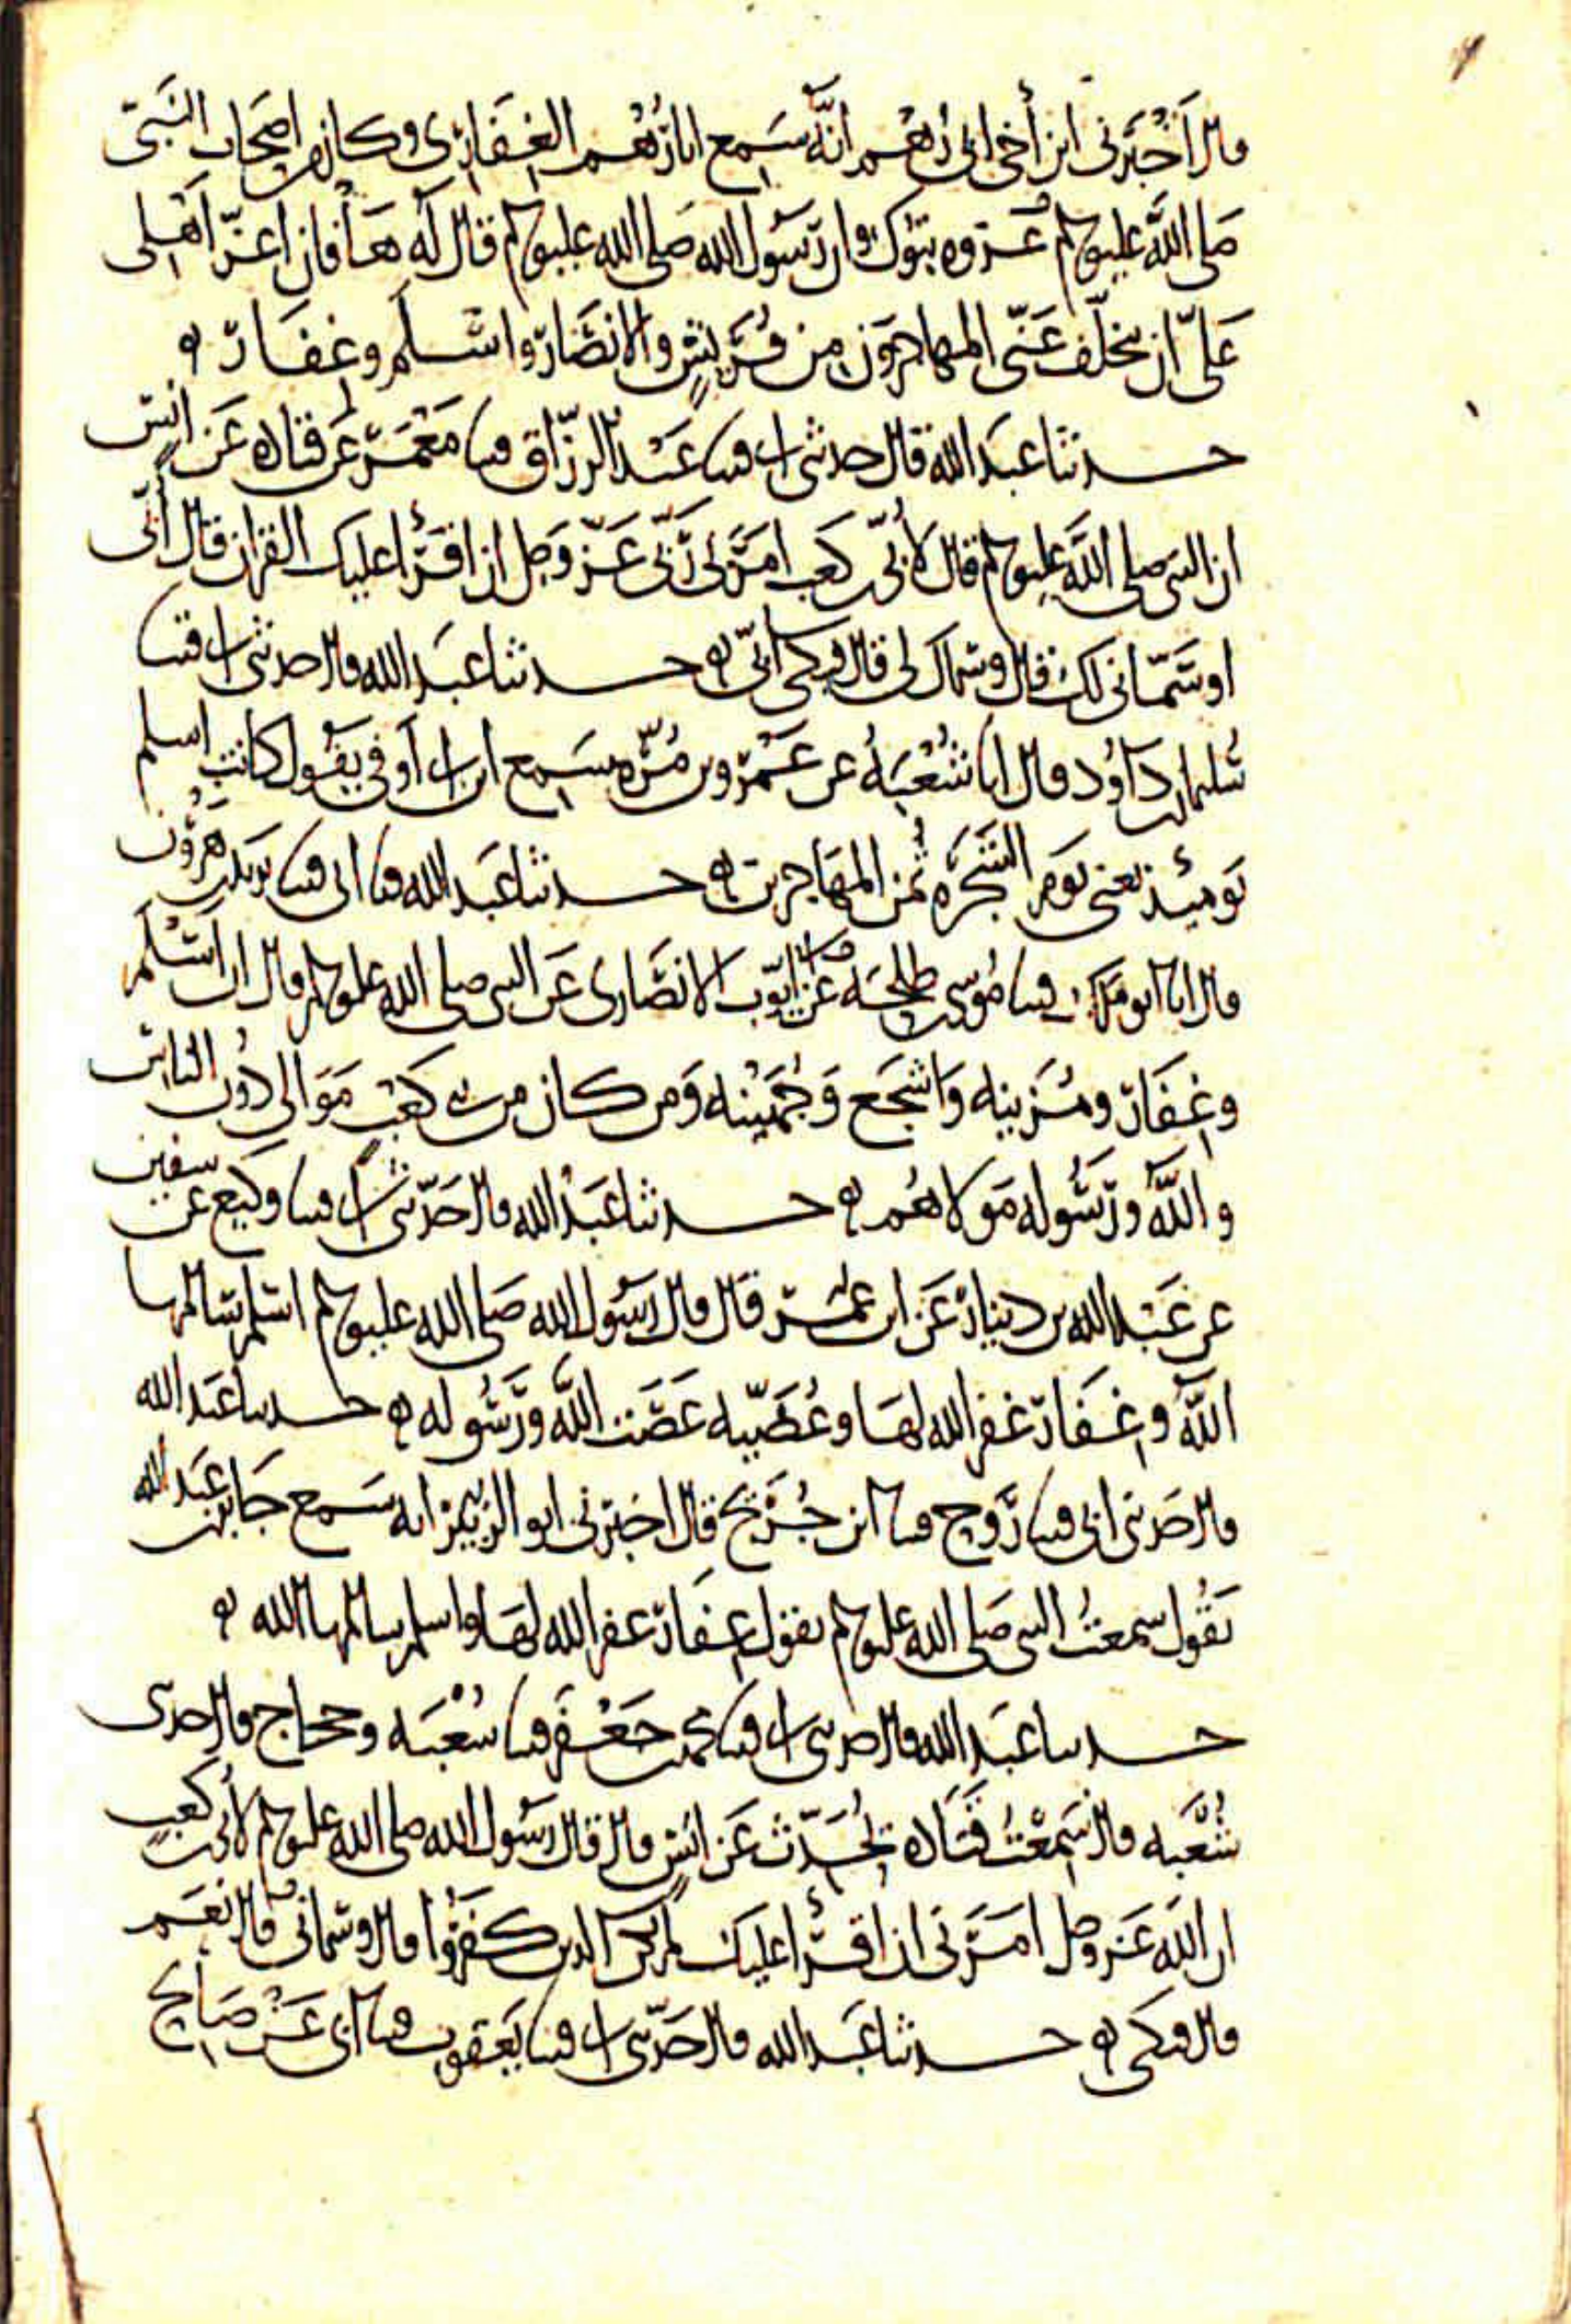 قال أخبرني ابن أخي ابي رهم انه سمع ابا رهم الغفاري وكان من اصحاب النبي
صلى الله عليه وسلم غزوه تبوك وان رسول الله صلى الله عليه وسلم قال له فان اعز اهلي
على ان يتخلف عني المهاجرون من قريش والانصار واسلم وغفار ه
حدثنا عبد الله قال حدثني ابي قثنا عبد الرزاق قثنا معمر عن قتاده عن انس
ان النبي صلى الله عليه وسلم قال لأبي بن كعب امرني ربي عز وجل ان اقرأ عليك القران قال أبي
او سماني لك قال وسماك لي قال فبكى أبي ه حدثنا عبد الله قال حدثني ابي قثنا
سليمان بن داود قال انا شعبه عن عمرو بن مره سمع ابن ابي أوفى يقول كانت اسلم
يومئذ يعني يوم الشجره ثمن المهاجرين ه حدثنا عبد الله قثنا ابي قثنا يزيد بن هرون
قال انا ابو ملك قثنا موسى بن طلحه عن ابي ايوب الانصاري عن النبي صلى الله عليه وسلم قال ان أسلم
وغفار ومزينه واشجع وجهينه ومن كان من بني كعب موالي دون الناس
والله ورسوله مولاهم ه حدثنا عبد الله قال حدثني ابي قثنا وكيع عن سفين
عن عبد الله بن دينار عن ابن عمر قال قال رسول الله صلى الله عليه وسلم اسلم سالمها
الله وغفار غفر الله لها وعصيه عصت الله ورسوله ه حدثنا عبد الله
قال حدثني ابي قثنا روح قثنا ابن جريج قال اخبرني ابو الزبير انه سمع جابر بن عبد الله
يقول سمعت النبي صلى الله عليه وسلم يقول غفار غفر الله لها واسلم سالمها الله ه
حدثنا عبد الله قال حدثني ابي قثنا محمد بن جعفر قثنا شعبه وحجاج قال حدثني
شعبه قال سمعت قتاده يحدث عن انس قال قال رسول الله صلى الله عليه وسلم لأبي بن كعب
ان الله عز وجل امرني ان اقرأ عليك لم يكن الذين كفروا قال وسماني قال نعم
قال فبكى ه حدثنا عبد الله قال حدثني ابي قثنا يعقوب قثنا ابي عن صالح